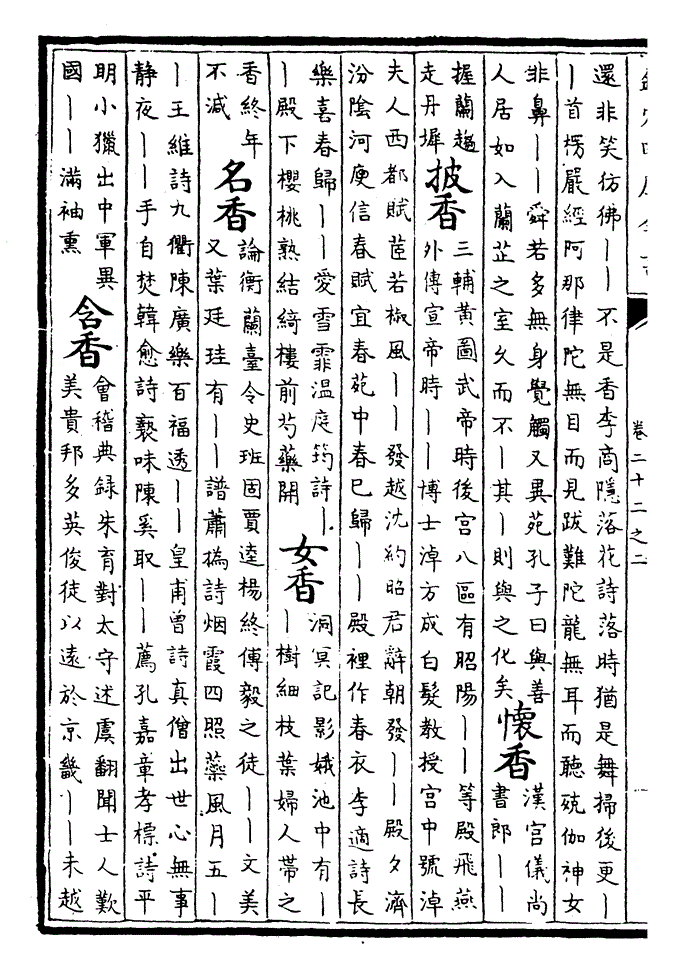 卷二十二之二
還非笑彷彿丨丨不是香李商隱落花詩落時猶是舞掃後更丨
丨首楞嚴經阿那律陀無目而見跋難陀龍無耳而聽殑伽神女
非鼻丨丨舜若多無身覺觸又異苑孔子曰與善
人居如入蘭芷之室久而不丨其丨則與之化矣
懷香
漢宫儀尚
書郎丨丨
握蘭趨
走丹墀
披香
三輔黄圖武帝時後宫八區有昭陽丨丨等殿飛燕
外傳宣帝時丨丨博士淖方成白髮教授宫中號淖
夫人西都賦茝若椒風丨丨發越沈約昭君辭朝發丨丨殿夕濟
汾陰河庾信春賦宜春苑中春已歸丨丨殿裡作春衣李適詩長
樂喜春歸丨丨愛雪霏温庭筠詩丨
丨殿下櫻桃熟結綺樓前芍藥開
女香
洞冥記影娥池中有丨
丨樹細枝葉婦人帶之
香終年
不減
名香
論衡蘭臺令史班固賈逵楊終傅毅之徒丨丨文美
又葉廷珪有丨丨譜蕭撝詩烟霞四照蘂風月五丨
丨王維詩九衢陳廣樂百福透丨丨皇甫曾詩真僧出世心無事
静夜丨丨手自焚韓愈詩褻味陳奚取丨丨薦孔嘉章孝標詩平
明小獵出中軍異
國丨丨滿袖熏
含香
會稽典録朱育對太守述虞翻聞士人歎
美貴邦多英俊徒以遠於京畿丨丨未越